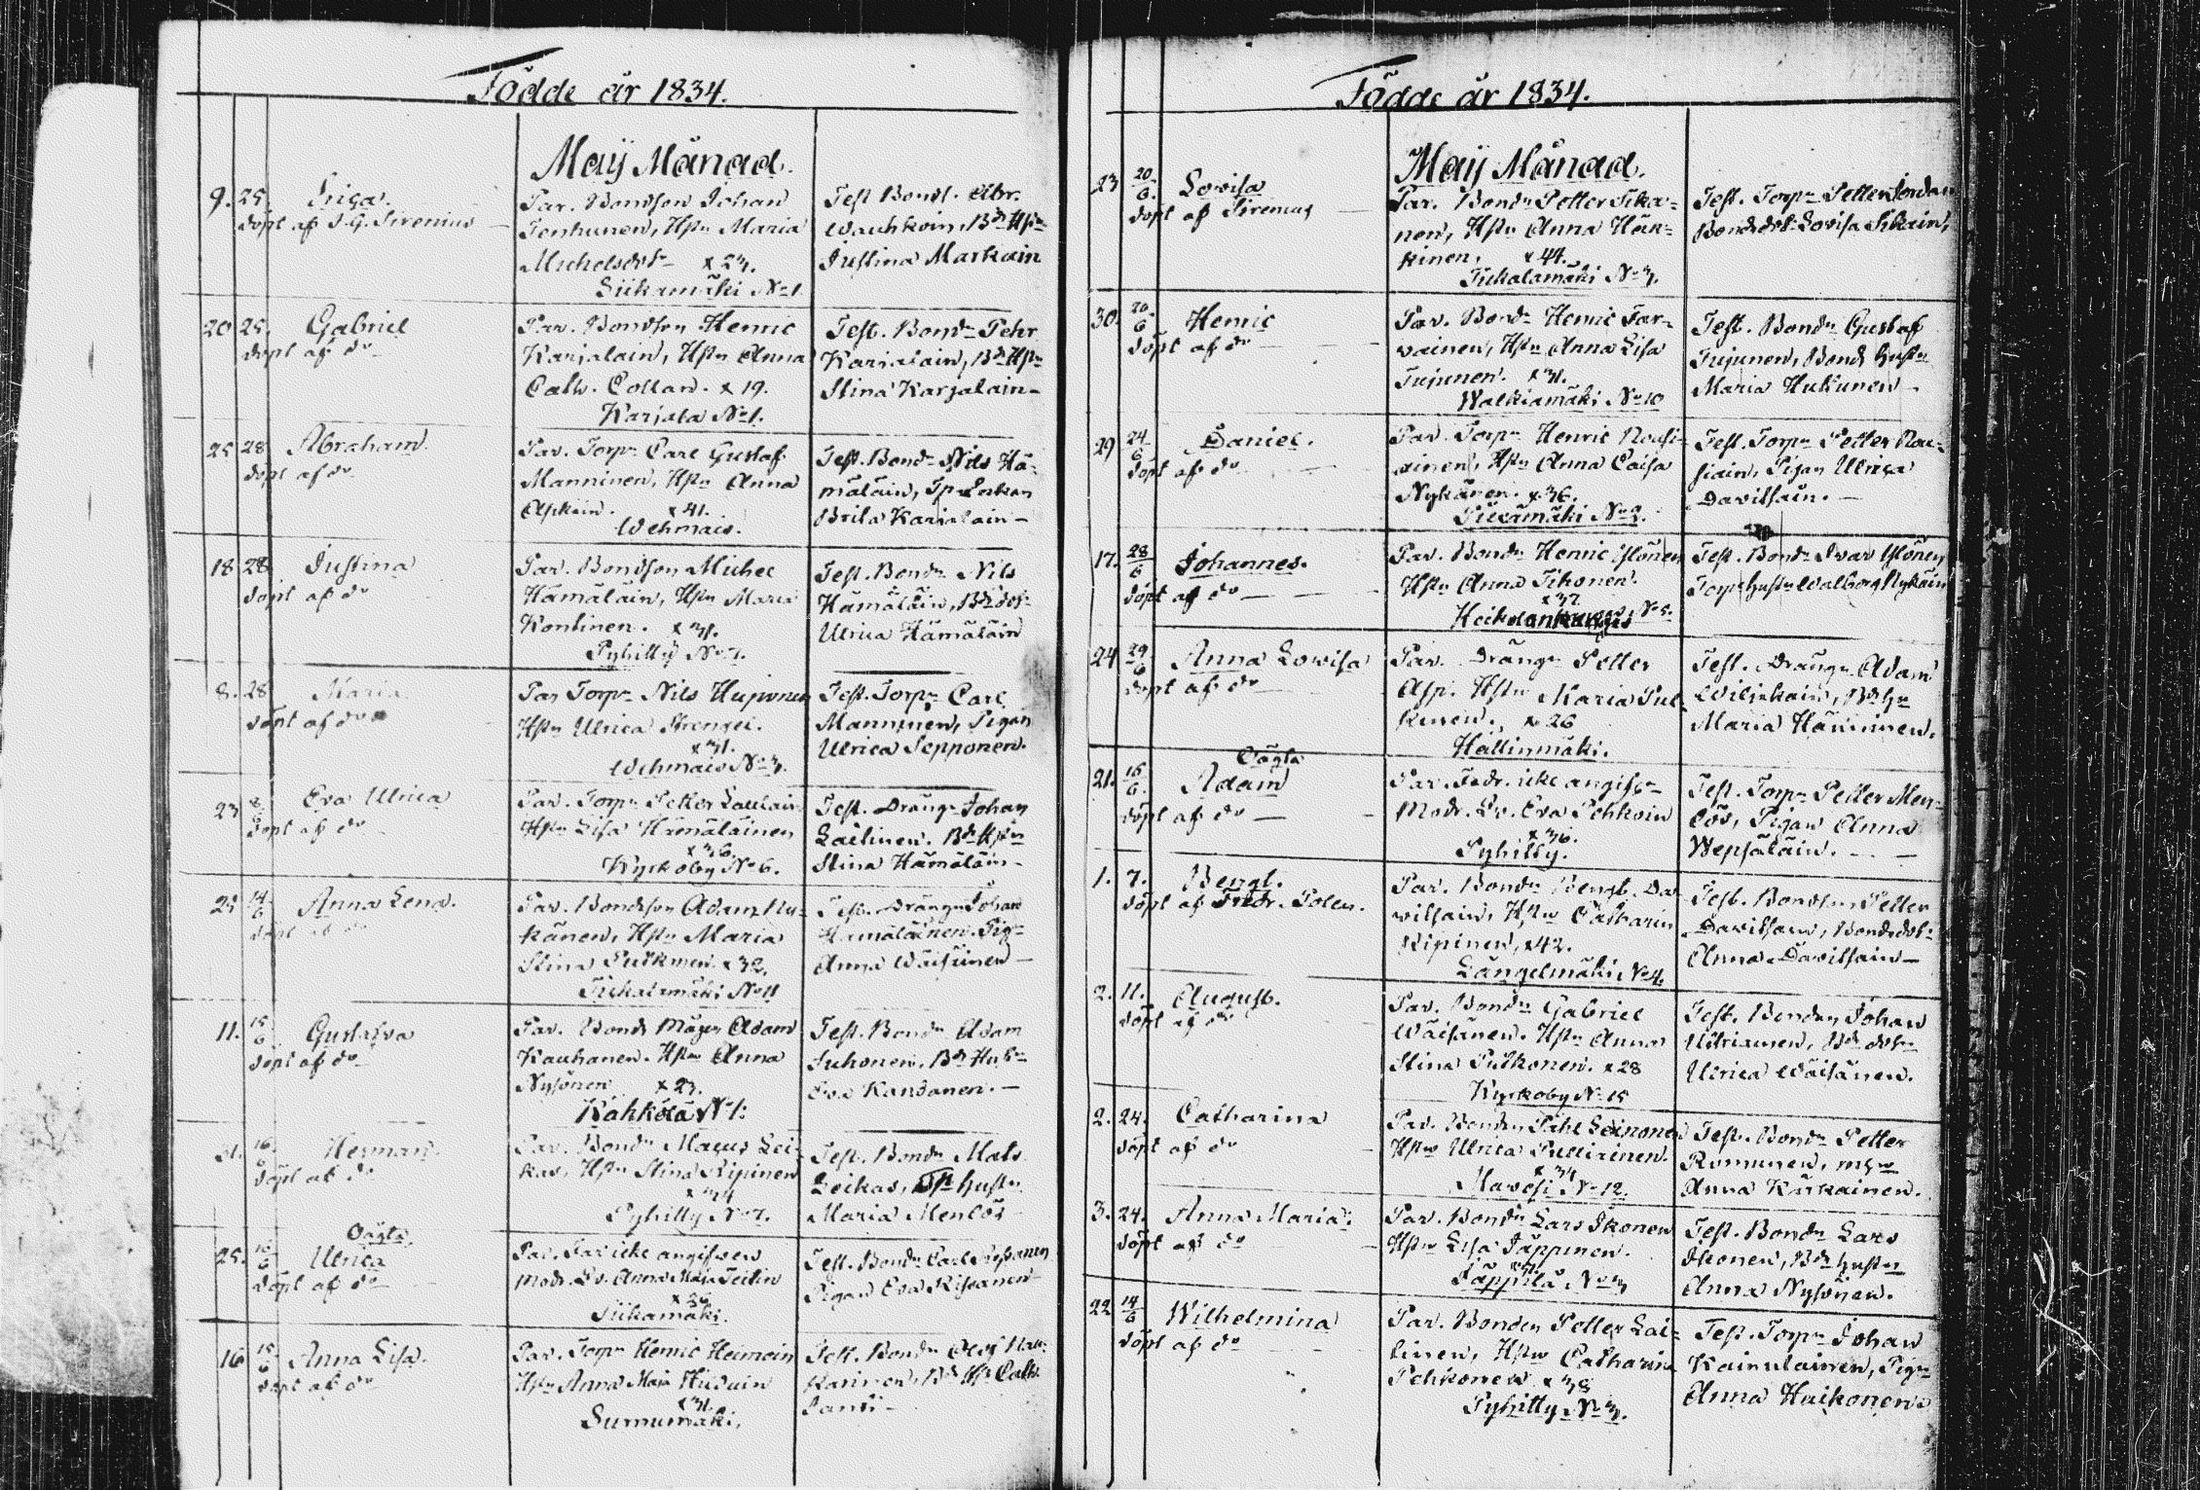 Födde år 1834.
Maij Månad.
9. 25. Briga.
döpt af J. G. Sirenius
Par. Bondson Johan
Tenhunen, Hstr Maria
Michelsdotr x 23.
Siikamäki No 1.
Test. Bonds. Abr.
Wauhkoin, Bds Hstr
Justina Markain
20 25. Gabriel
döpt af do
Par. Bondson Henric
Karjalain, Hstr Anna
Cath. Collan. x 19.
Karjala No 1.
Test. Bondn Pehr
Karjalain, Bds Hstr
Stina Karjalain
25 28 Abraham.
döpt af do
Par. Torpn Carl Gustaf
Manninen, Hstr Anna
x 41.
Wehmais.
Test. Bondn Nils Hä-
mäläin,
Brita Karjalain
18 28 Justina
döpt af do
Par. Bondson Michel
Hämäläin, Hstr Maria
Kontinen. x 31.
Pyhitty No 7.
Test. Bondn Nils
Hämäläin, Bds dotr
Ulrica Hämäläin
8. 28 Maria
döpt af do
Par. Torpn Nils Hujponen
Hstr Ulrica Strengel.
x 31.
Wehmais No 3.
Test. Torpn Carl
Manninen, Pigan
Ulrica Sepponen.
23 8/6 Eva Ulrica
döpt af do
Par. Torpn Petter Laulain
Hstr Lisa Hämäläinen
x 36.
Kyrkoby No 6.
Test. Drängn Johan
Laitinen. Bds Hstr
Stina Hämäläin
25 14/6 Anna Lena.
döpt af do
Par. Bondson Adam Ny-
känen, Hstr Maria
Stina Pulkinen x 32.
Tihalamäki No 11
Test. Drängn Johan
Hämäläinen. Pig.
Anna Wäisäinen
11. 15/6 Gustafva
döpt af do
Par. Bonds Mågen Adam
Kauhanen. Hstr Anna
Nysönen x 23.
Kahkolä No 1.
Test. Bondn Adam
Juhonen. Bds Hust.
Eva Kansanen.
21. 16/6 Herman.
döpt af do
Par. Bondn Magus Lei-
kas, Hstr Stina Ripinen
x 34
Pyhitty No 7.
Test. Bondn Mats
Leikas, Tp. hustr
Maria Menlös
25. 16/6 Oägta
Ulrica
döpt af do
Par. Far icke angifven
Modr. Lö. Anna Maja Teitin
Siikamäki.
Test. Bondn Carl Rissanen
Pigan Eva Rissanen
16 15/6 Anna Lisa.
döpt af do
Par. Torpn Henric Heimoin
Hstr Anna Maja
x 31.
Surnumäki.
Test. Bondn Olof
Karinen, Bds Hs Cath.
Födde år 1834.
Maij Månad.
23 20/6. Lovisa
döpt af Sirenius
Par. Bondn Petter Sika-
nen, Hstr Anna Hän-
kinen, x 44.
Tihalamäki No 3.
Test. Torpn Petter Jordan
Bondedotr Lovisa Sikain,
30. 20/6 Henric
döpt af do
Par. Bondn Henric Tar-
vainen, Hstr Anna Lisa
Tujunen. x 31.
Walkiamäki No 10
Test. Bondn Gustaf
Tujunen, Bonds hustr
Maria Hukunen
29 24/6 Daniel.
döpt af do
Par. Torpn Henric Rousi-
ainen, Hstr Anna Caisa
Nykänen. x 36.
No 2.
Test. Torpn Petter Rou-
siain, Pigan Ulrica
Davitsain.
17. 28/6 Johannes.
döpt af do
Par. Bondn Henric Ylönen
Hstr Anna Tihonen.
x 32
No 5.
Test. Bondn Ivar Ylönen
Torps hustr Walborg Nykäin
24 29/6 Anna Lovisa
döpt af do
Par. Drängn Petter
Asp. Hstr Maria Pul-
kinen. x 26
Hällinmäki.
Test. Drängn Adam
Wiljakain, Bds Hu
Maria Hänninen.
21. 15/6. Oägta
Adam
döpt af do
Par. Fadr. icke angifven
Modr. Lö. Eva Pehkoin
x 36.
Pyhitty.
Test. Torpn Petter Men-
lös, Pigan Anna
Wepsäläin.
1. 7. Bengt.
döpt af Fredr. Polen.
Par. Bondn Bengt Da-
vitsain, Hstr Catharin
Ripinen, x 42.
Längelmäki No 4.
Test. Bondson Petter
Davitsain, Bondedotr
Anna Davitsain
2. 11. August.
döpt af do
Par. Bondn Gabriel
Wäisänen. Hstr Anna
Stina Pulkonen. x 28
Kyrkoby No 15
Test. Bonden Johan
Utriainen, Bds dotr
Ulrica Wäisänen.
2. 24. Catharina
döpt af do
Par. Bonden Påhl Leinonen
Hstr Ulrica Pulliainen.
x 34
Mavesi No 12.
Test. Bondn Petter
Romunen,
Anna Kärkainen.
3. 24. Anna Maria.
döpt af do
Par. Bondn Lars Ikonen
Hstr Lisa Jäppinen.
Jäppilä No 3
Test. Bondn Lars
Ikonen, Bds hustr
Anna Nysönen.
22 14/6 Wilhelmina
döpt af do
Par. Bonden Petter Lai-
tinen, Hstr Catharina
Pehkonen x 38
Pyhitty No 3.
Test. Torpn Johan
Kainulainen, Pign
Anna Haikonen